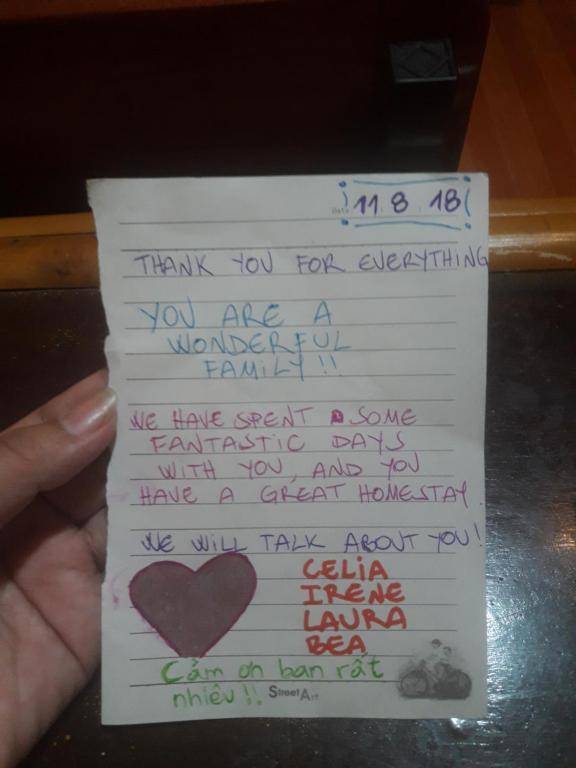 Date
11.8.18
THANK YOU FOR EVERYTHING
YOU ARE A
WONDERFUL
FAMILY!!
WE HAVE SPENT SOME
FANTASTIC DAYS
WITH YOU, AND YOU
HAVE A GREAT HOMESTAY.
WE WILL TALK ABOUT YOU!
CELIA
IRENE
LAURA
BEA
Cảm ơn bạn rất
nhiều!!
Street Art